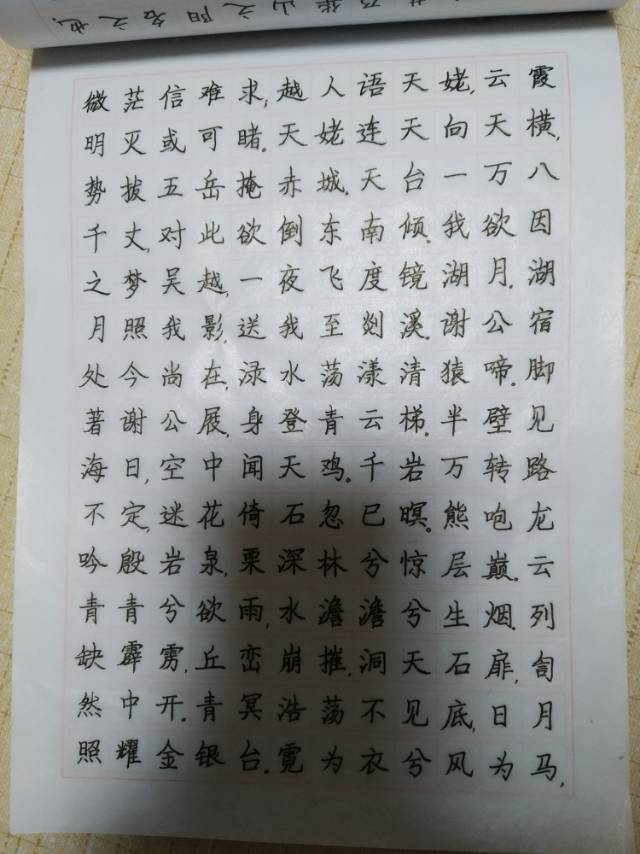 乃华山之阳名之也。
微茫信难求,越人语天姥,云霞
明灭或可睹。天姥连天向天横,
势拔五岳掩赤城。天台一万八
千丈,对此欲倒东南倾。我欲因
之梦吴越,一夜飞度镜湖月。湖
月照我影,送我至剡溪。谢公宿
处今尚在,渌水荡漾清猿啼。脚
著谢公展,身登青云梯。半壁见
海日,空中闻天鸡。千岩万转路
不定,迷花倚石忽已暝。熊咆龙
吟殷岩泉,栗深林兮惊层巅。云
青青兮欲雨,水澹澹兮生烟。列
缺霹雳,丘峦崩摧。洞天石扉,訇
然中开。青冥浩荡不见底,日月
照耀金银台。霓为衣兮风为马,